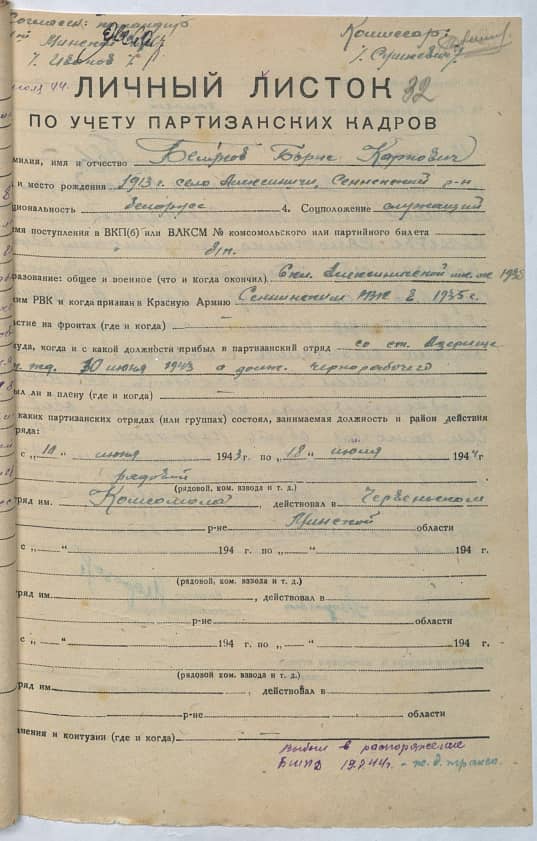 Согласен: командир
Комиссар:
/. Иванов /.
/. Сушкевич /.
ЛИЧНЫЙ ЛИСТОК 32
ПО УЧЕТУ ПАРТИЗАНСКИХ КАДРОВ
милия, имя и отчество Борис Карпович
и место рождения 1913 г. село Алексиничи, Сенненский р-н
циональность белорус 4. Соцположение служащий
мя поступления в ВКП(б) или ВЛКСМ № комсомольского или партийного билета
б/п.
разование: общее и военное (что и когда окончил) 6 кл. Алексиничской
ким РВК и когда призван в Красную Армию Сеннинским РВК в 1935 г.
стие на фронтах (где и когда) —
куда, когда и с какой должности прибыл в партизанский отряд со ст. Озерище
ж.д. 10 июня 1943 с долж. чернорабочего
ыл ли в плену (где и когда) —
каких партизанских отрядах (или группах) состоял, занимаемая должность и район действия
ряда:
с „10“ июня 1943 г. по „18“ июля 1944 г.
рядовой
(рядовой, ком. взвода и т. д.)
ряд им. Комсомола, действовал в Червеньском
р-не Минской области
с „ “ 194 г. по „ “ 194 г.
(рядовой, ком. взвода и т. д.)
ряд им. , действовал в
р-не области
с „ “ 194 г. по „ “ 194 г.
(рядовой, ком. взвода и т. д.)
ряд им. , действовал в
р-не области
анения и контузии (где и когда) —
выбыл в распоряжение
БШПД 19.7.44 г. - ж.д. трансп.